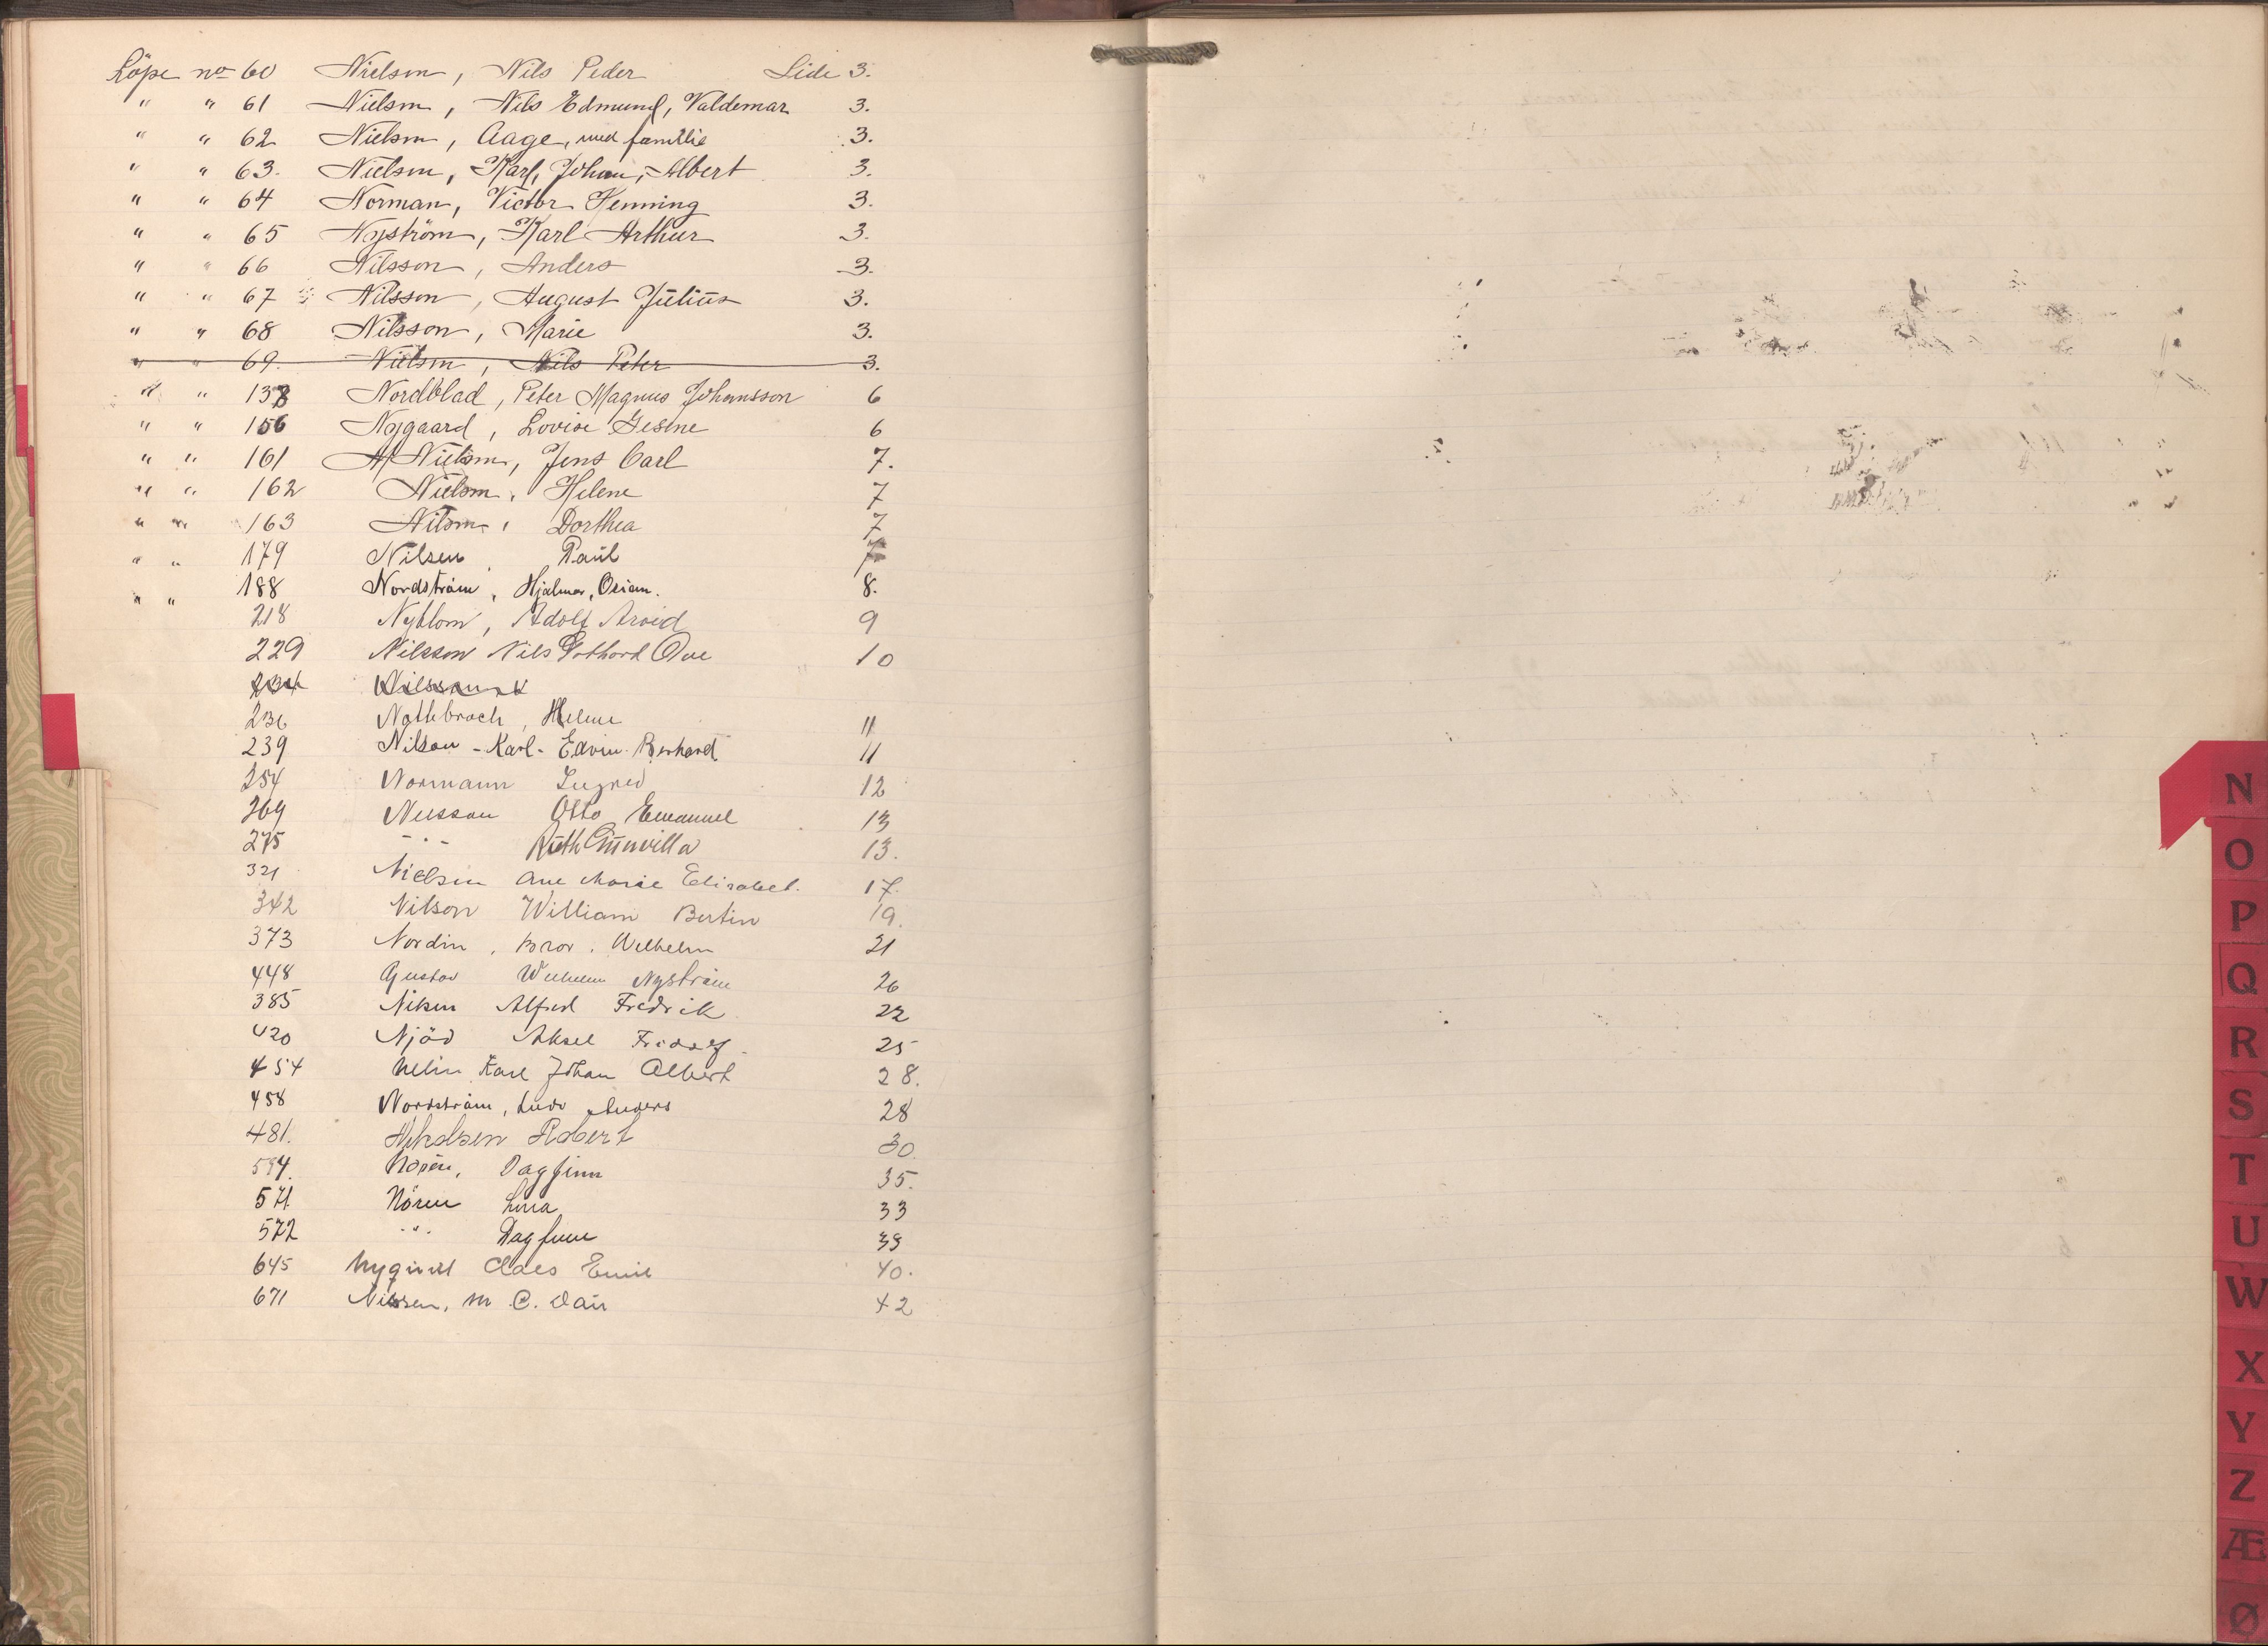 Löpe no 60 Nielsen, Nils Peder Side 3.
" " 61 Nielsen, Nils Edmund, Valdemar 3.
" " 62 Nielsen, Aage, med familie 3.
" " 63. Nielsen, Karl, Johan, Albert 3.
" " 64 Norman, Victor Henning 3.
" " 65 Nyström, Karl Arthur 3.
" " 66 Nilsson, Anders 3.
" " 67 Nilsson, August Julius 3.
" " 68 Nilsson, Marie 3.
" " 69. Nielsen, Nils Peter 3.
" " 138 Nordblad, Peter Magnus Johansson 6
" " 156 Nygaard, Lovise Gesine 6
" " 161 Nielsen, Jens Carl 7.
" " 162 Nielsen, Helene 7
" " 163 Nilsen, Dorthea 7
" " 179 Nilsen, Paul 7
" " 188 Nordström, Hjalmar, Osian. 8.
218 Nyblom, Adolf Arvid 9
229 Nilsson Nils Gothard Ove 10
234 Nilsson
236 Helene 11
239 Nilson - Karl - Edvin Berhard 11
254 Normann Ingrid 12
269 Nilsson Otto Emanuel 13
275 - " - Ruth 13.
321 Nielsen Ane Marie Elisabet. 17.
342 Nilson William Bertin 19.
373 Nordin, Bror. Wilhelm 21
448 Gustav Wilhelm Nyström 26
385 Nilsen Alfred Fredrik 22
420 Njöd Aksel Fridolf 25
454 Nelin Karl Johan Albert 28.
458 Nordström, Anders 28
481. Robert 30.
594. Nören, Dagfinn 35.
571 Nören Lina 33
572 - " - Dagfinn 39
645 Nyqvist Claes Emil 40.
671 Nilssen, M. C. 42
N
O
P
Q
R
S
T
U
W
X
Y
Z
Æ
Ø